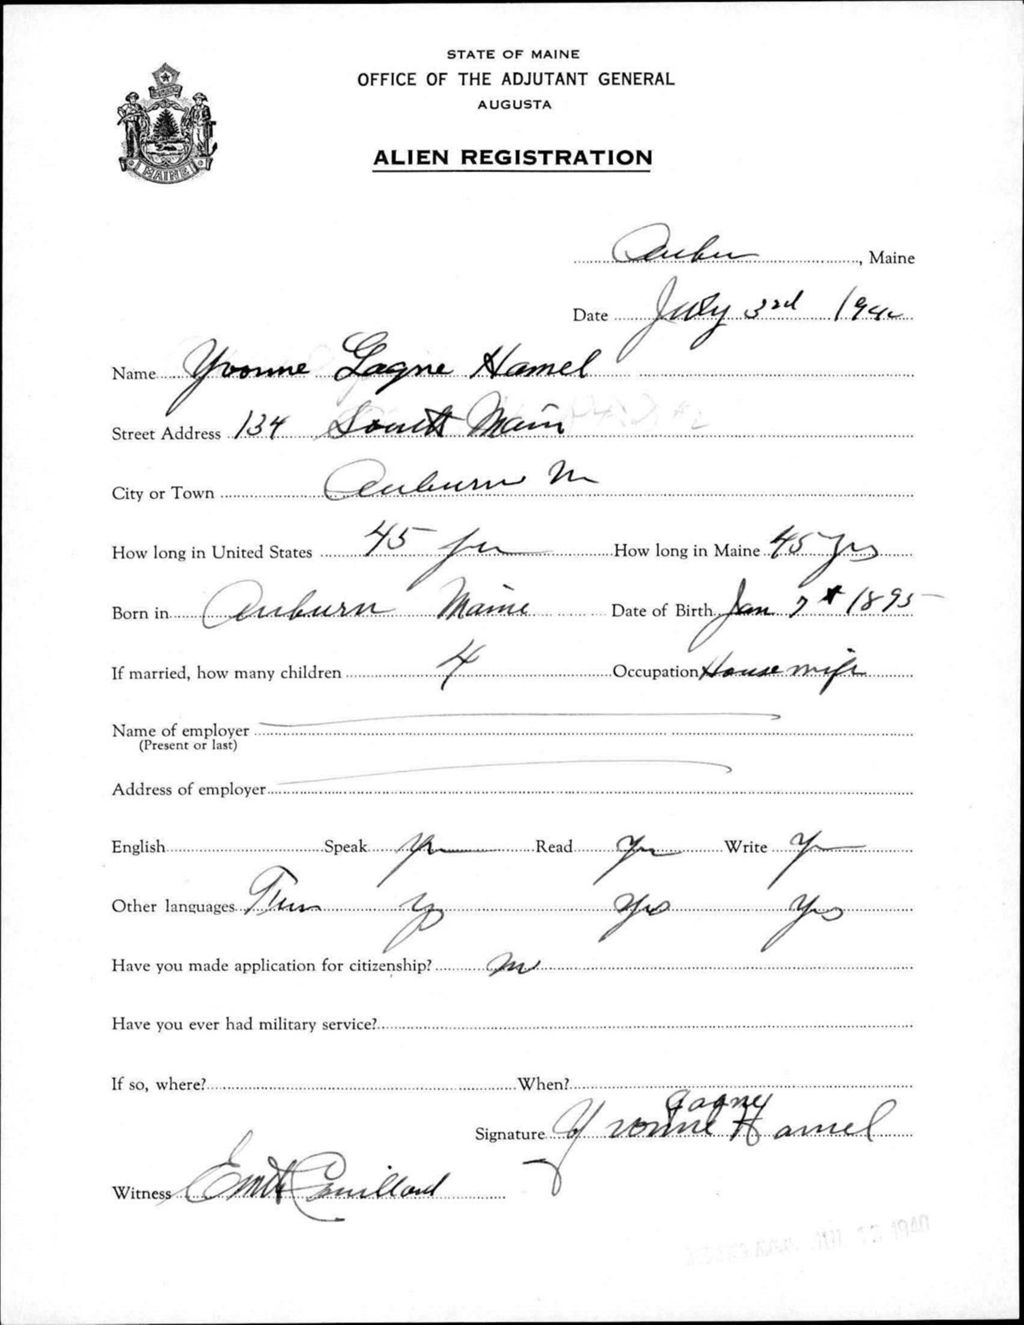 STATE OF MAINE
OFFICE OF THE ADJUTANT GENERAL
AUGUSTA
ALIEN REGISTRATION
MAINE
Auburn, Maine
Date July 3rd 1940
Name Yvonne Gagne Hamel
Street Address 134 South Main
City or Town Auburn M
How long in United States 45 yrs How long in Maine 45 yrs
Born in Auburn Maine Date of Birth Jan 7 1895
If married, how many children 4 Occupation Housewife
Name of employer
(Present or last)
Address of employer
English Speak Yes Read Yes Write Yes
Other languages Yes Yes Yes
Have you made application for citizenship? No
Have you ever had military service?
If so, where? When?
Gagne
Signature Yvonne Hamel
Witness Couillard
1940